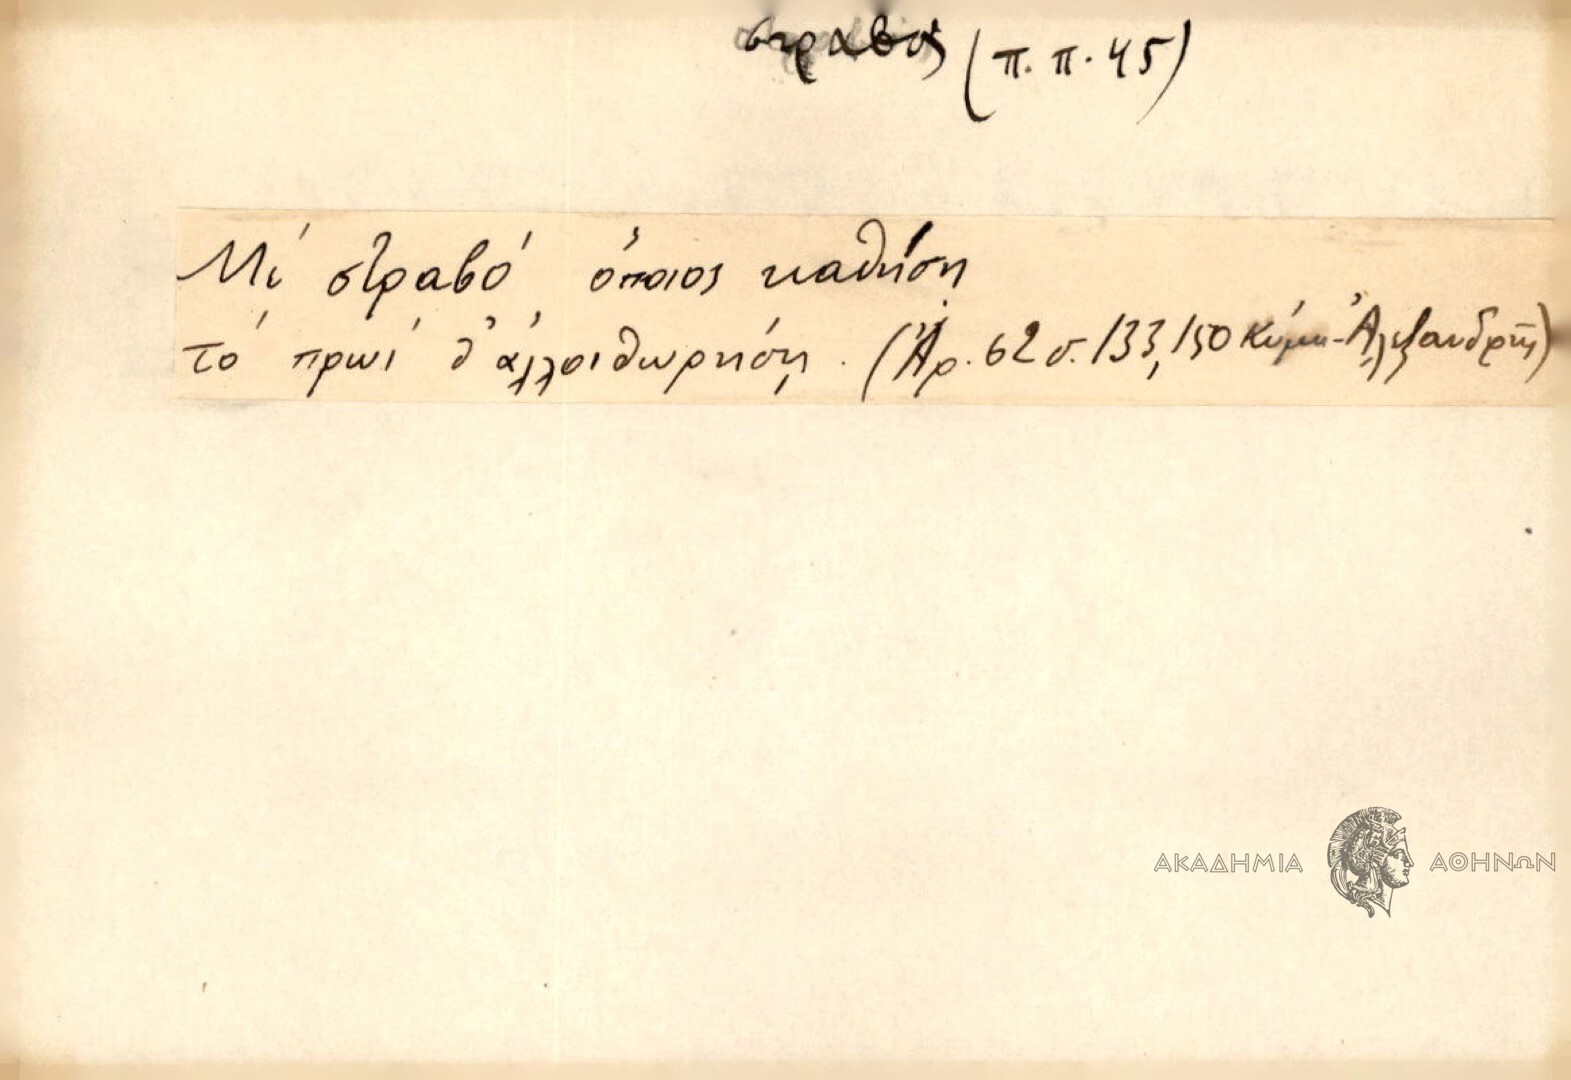 στραβός (π. π. 45)
Μέ στραβό ὅποιος καθήση
τό πρωί θ' ἀλλοιθωρήση. (Ἀρ. 62 σ. 133, 150 Κύμη-Ἀλεξανδρῆς)
ΑΚΑΔΗΜΙΑ ΑΘΗΝΩΝ